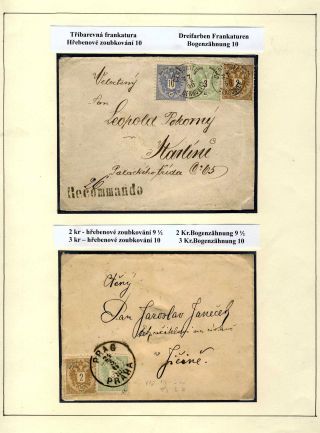 Tříbarevná frankatura
Hřebenové zoubkování 10
Dreifarben Frankaturen
Bogenzähnung 10
10
3
2
Velectěný
Pan
Leopold Pokorný
Karlíně
Palackého třída Č 65
Recommando
2 kr - hřebenové zoubkování 9 ½
3 kr – hřebenové zoubkování 10
2 Kr.Bogenzähnung 9 ½
3 Kr.Bogenzähnung 10
Ctěný
Pan Jaroslav Janeček
Jičíně
2
PRAG
PRAHA